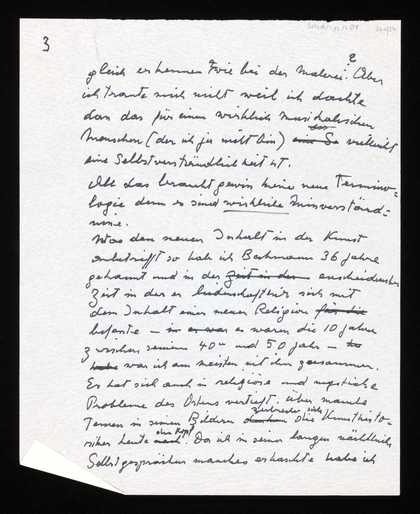 3
gleich erkennen wie bei der Malerei? Aber
ich traute mich nicht weil ich dachte
das das für einen wirklich musikalischen
Menschen (der ich ja nicht bin) so vielleicht
eine Selbstverständlichkeit ist.
All das braucht gewiss keine neue Termino-
logie denn es sind wirkliche Missverständ-
nisse.
Was den neuen Inhalt in der Kunst
anbetrifft so hab ich Beckmann 36 Jahre
gekannt und in der Zeit in der entscheidensten
Zeit in der er leidenschaftlich sich mit
dem Inhalt einer neuen Religion für die
befasste – in er war es waren die 10 Jahre
zwischen seinem 40 und 50 Jahr –
war ich am meisten mit ihm zusammen.
Er hat sich auch in religiöse und mystische
Probleme des Ostens vertieft. über manche
in seinen Bildern zerbrechen sich die Kunsthisto-
riker heute den Kopf. Da ich in seinen langen nächtlichen
Selbstgesprächen manches erhaschte habe ich